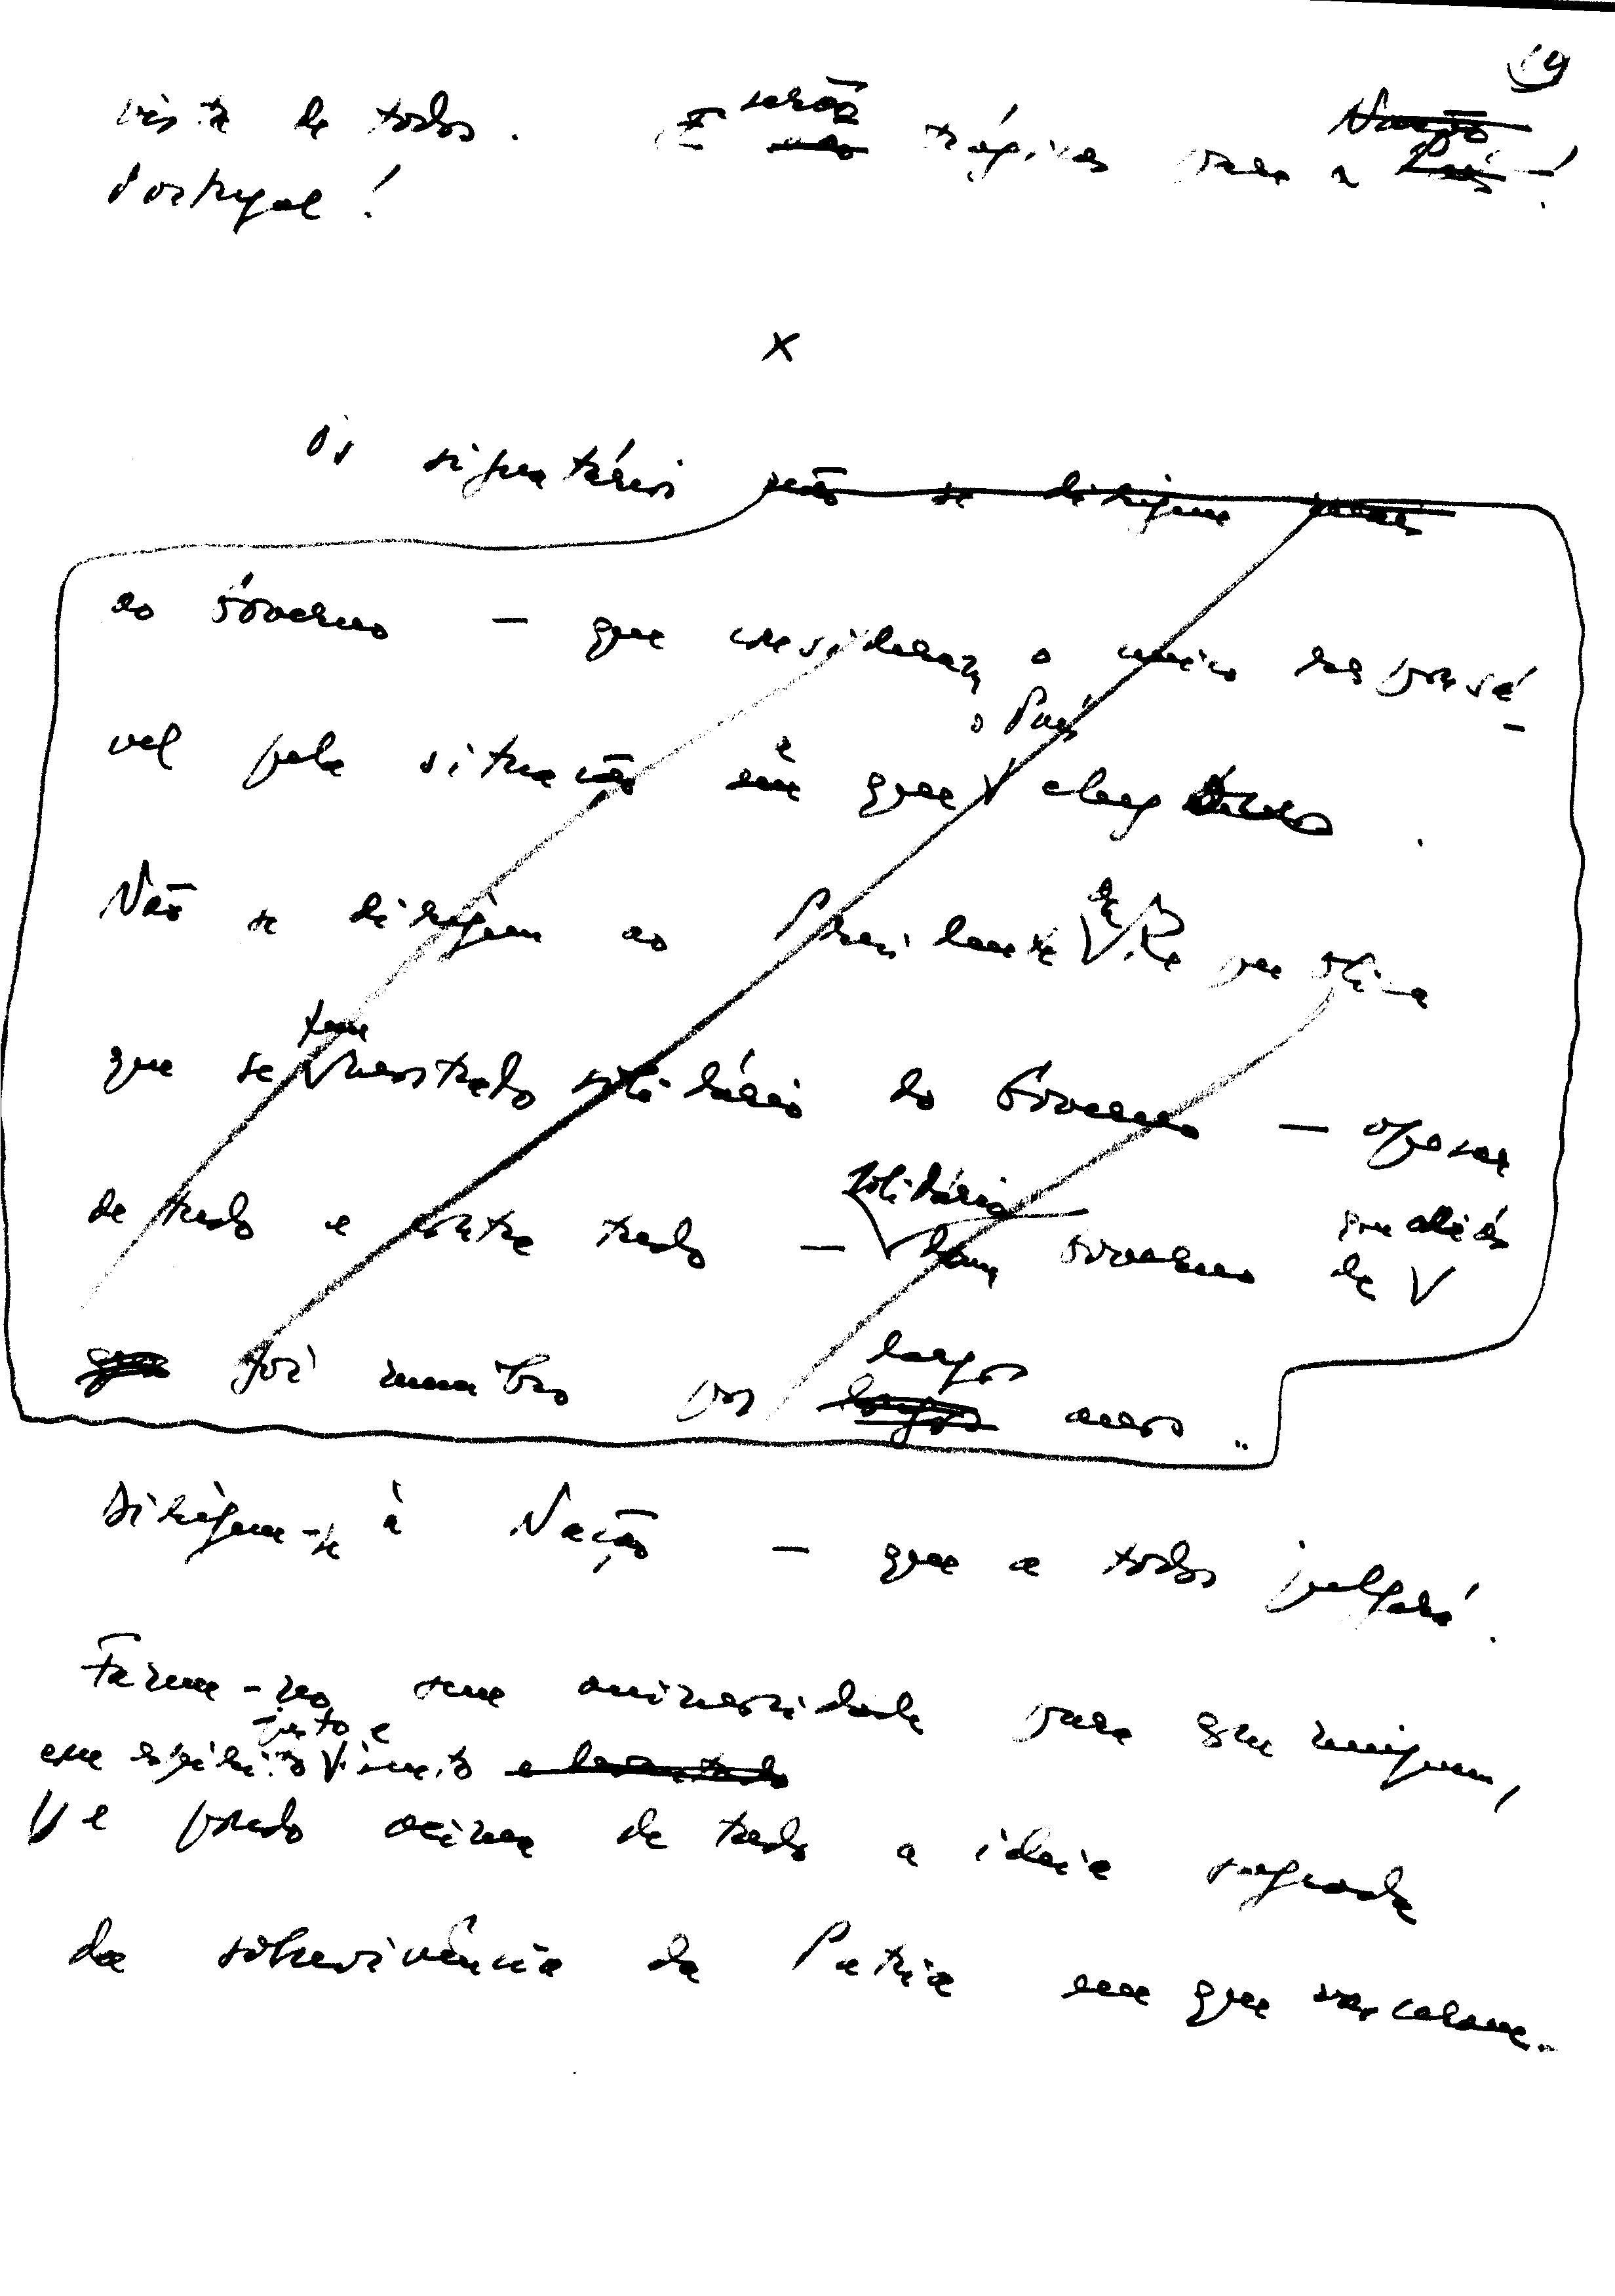 19
vista de todos. E serão são trágicas para a Nação País!
Portugal!
x
Os signatários não se dirigem mais
ao Govêrno — que consideram o único responsá-
vel pela situação a em que o País chegou.
Não se dirigem ao Presidente da R. que
que se tem mostrado solidário do Govêrno — apesar
de tudo e contra tudo — solidário dum Govêrno de que aliás
que foi membro por largos longos anos..
Dirigem-se à Nação — que a todos julgará.
Fazem-no sem animosidade para com ninguém,
em espírito justo e isento e levantado
e pondo acima de tudo a ideia sagrada
da sobrevivência da Patria em que nasceram..